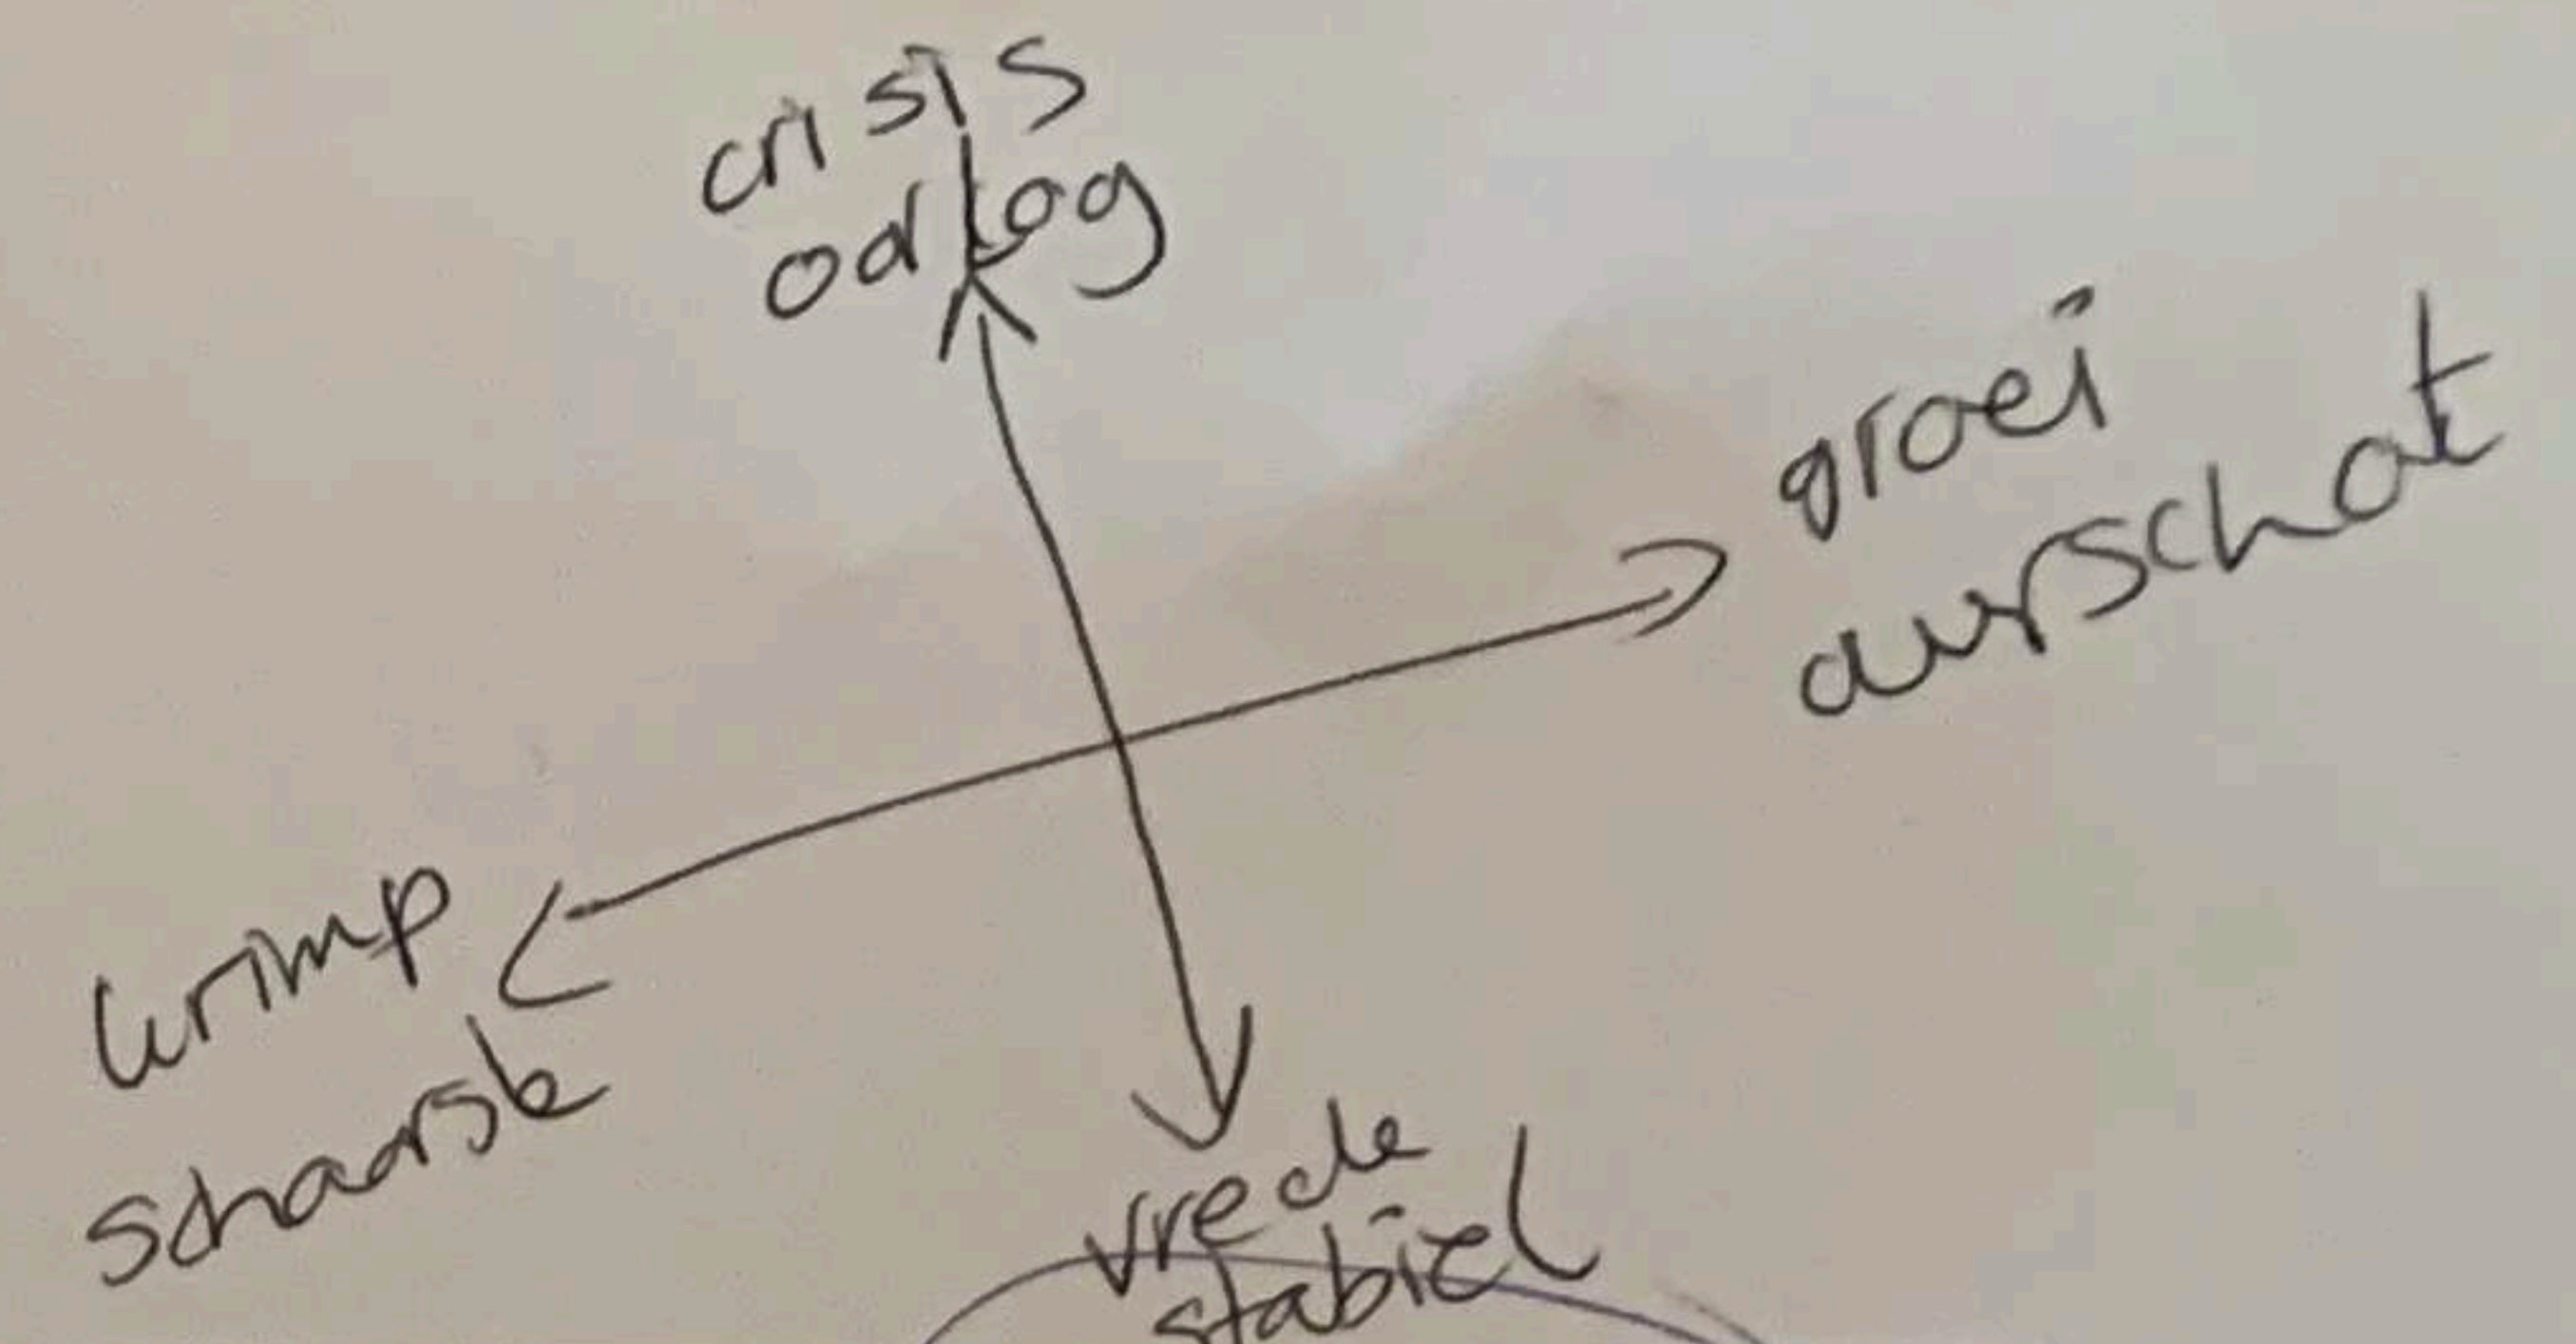 crisis
oorlog
groei
overschot
krimp
schaarste
vrede
stabiel